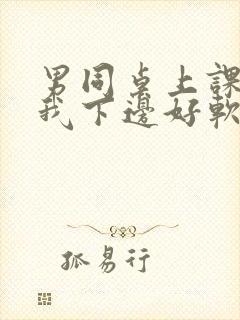 男同桌上課
我下邊好軟
孤易行